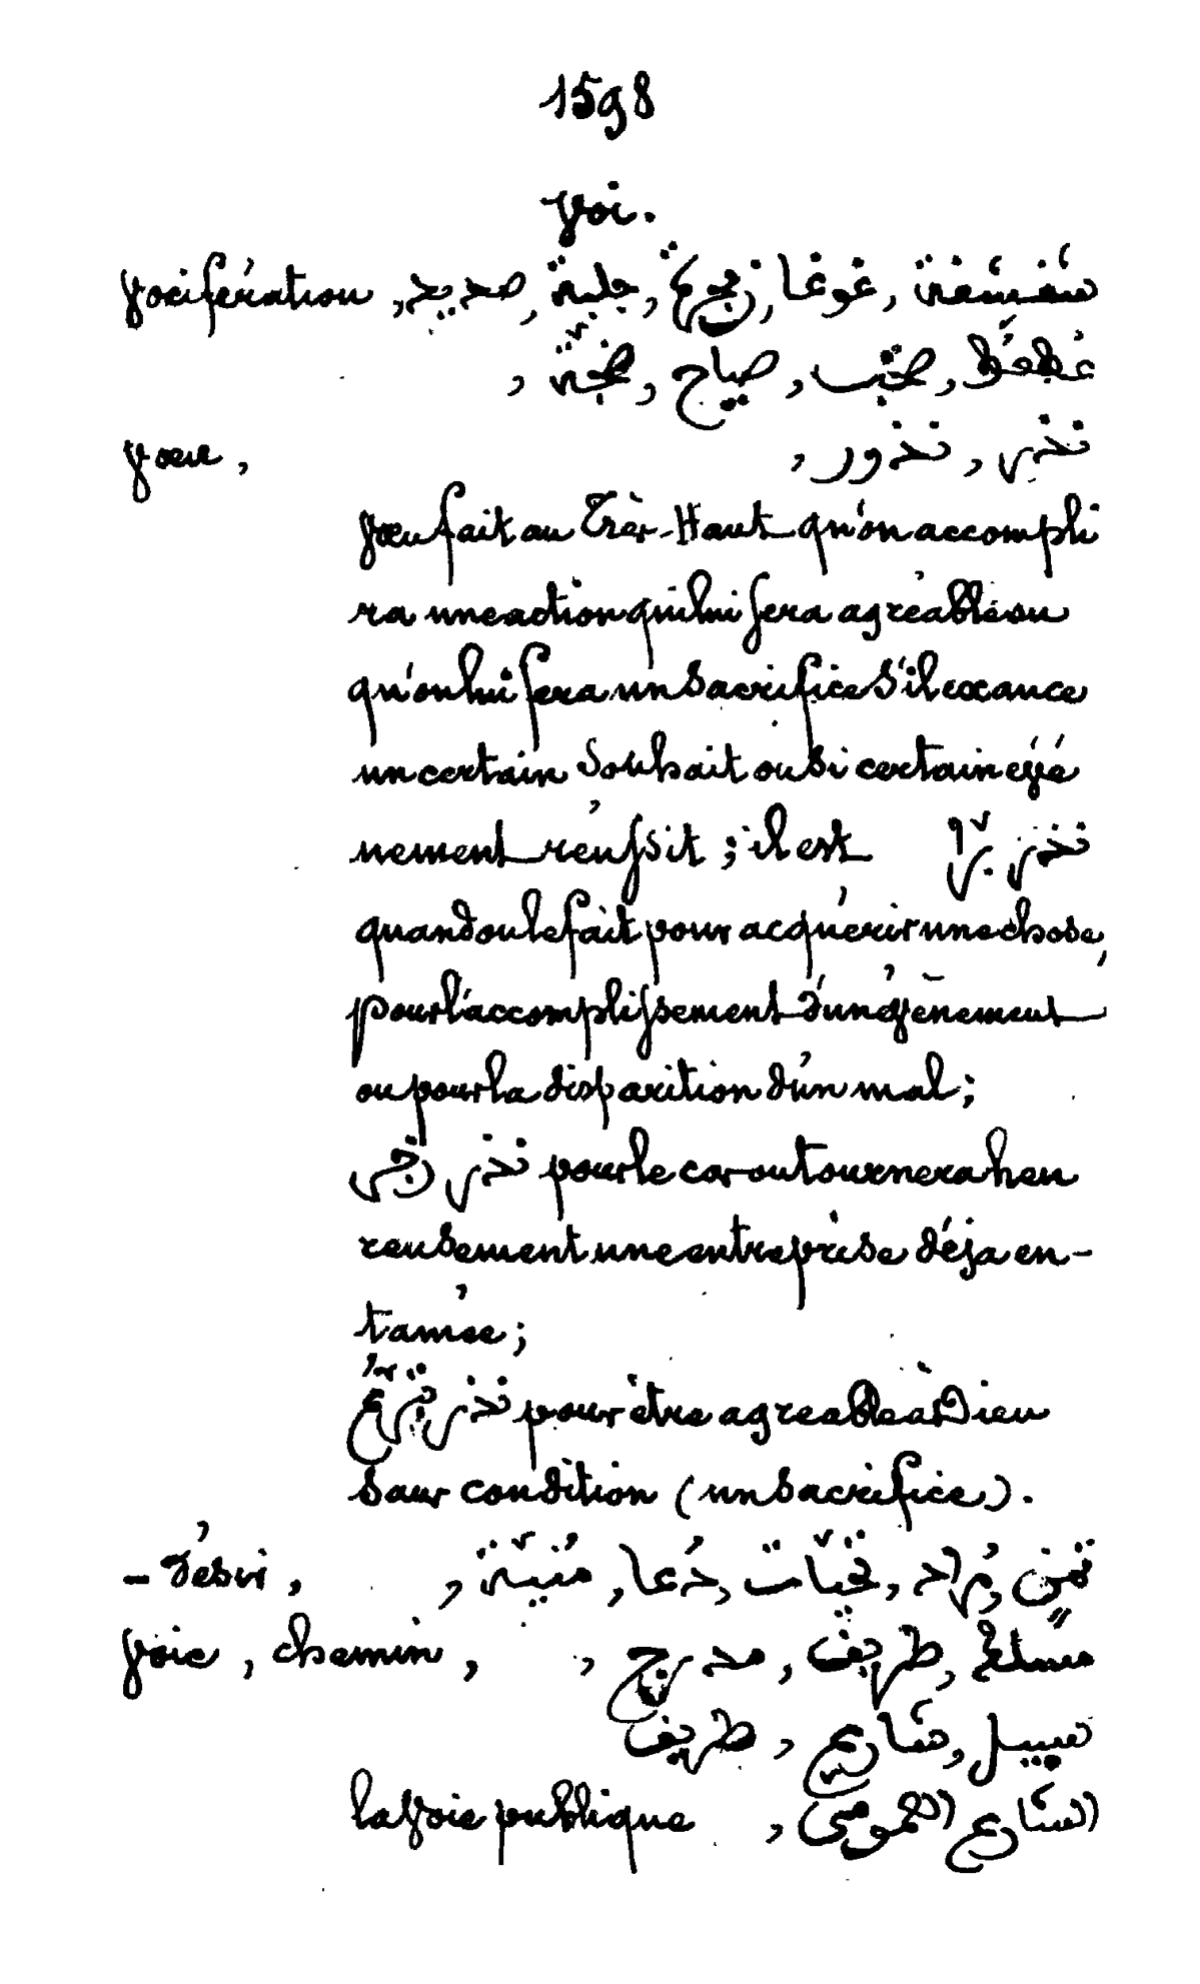 1598
Voi.
Vocifération, شغشغة, غوغا, زمجرة, جلبة, صديد,
صخب, صياح, ضجّة,
Vœu, نذر, نذور,
Vœu fait au Très-Haut qu'on accompli
ra une action qui lui sera agréable ou
qu'on lui fera un sacrifice s'il exauce
un certain souhait ou si certain évé
nement réussit ; il est نذر برّ
quand on le fait pour acquérir une chose,
pour l'accomplissement d'un évènement
ou pour la disparition d'un mal ;
نذر زجر pour le cas où tournera heu
reusement une entreprise déja en-
tamée ;
نذر تبرّع pour être agréable à Dieu
sans condition (un sacrifice).
- désir, تمنٍّ, مُراد, تحيّات, دُعا, مُنيّة,
Voie, chemin, مسلك, طريق, مدرج,
سبيل, شارع, طريق
la voie publique الشارع العمومى,